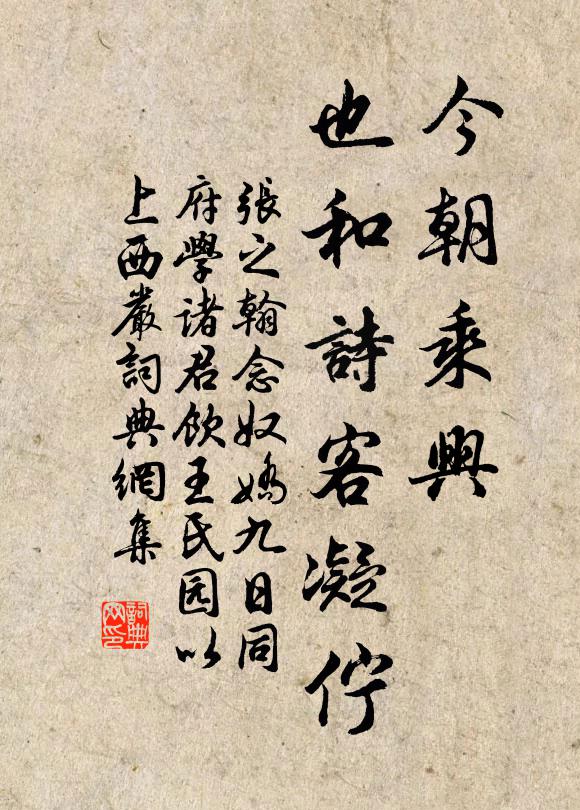 今朝乘興
也和詩客凝佇
張之翰念奴嬌九日同
府學諸君飲王氏园以
上西巖詞典網集
詞典
网印